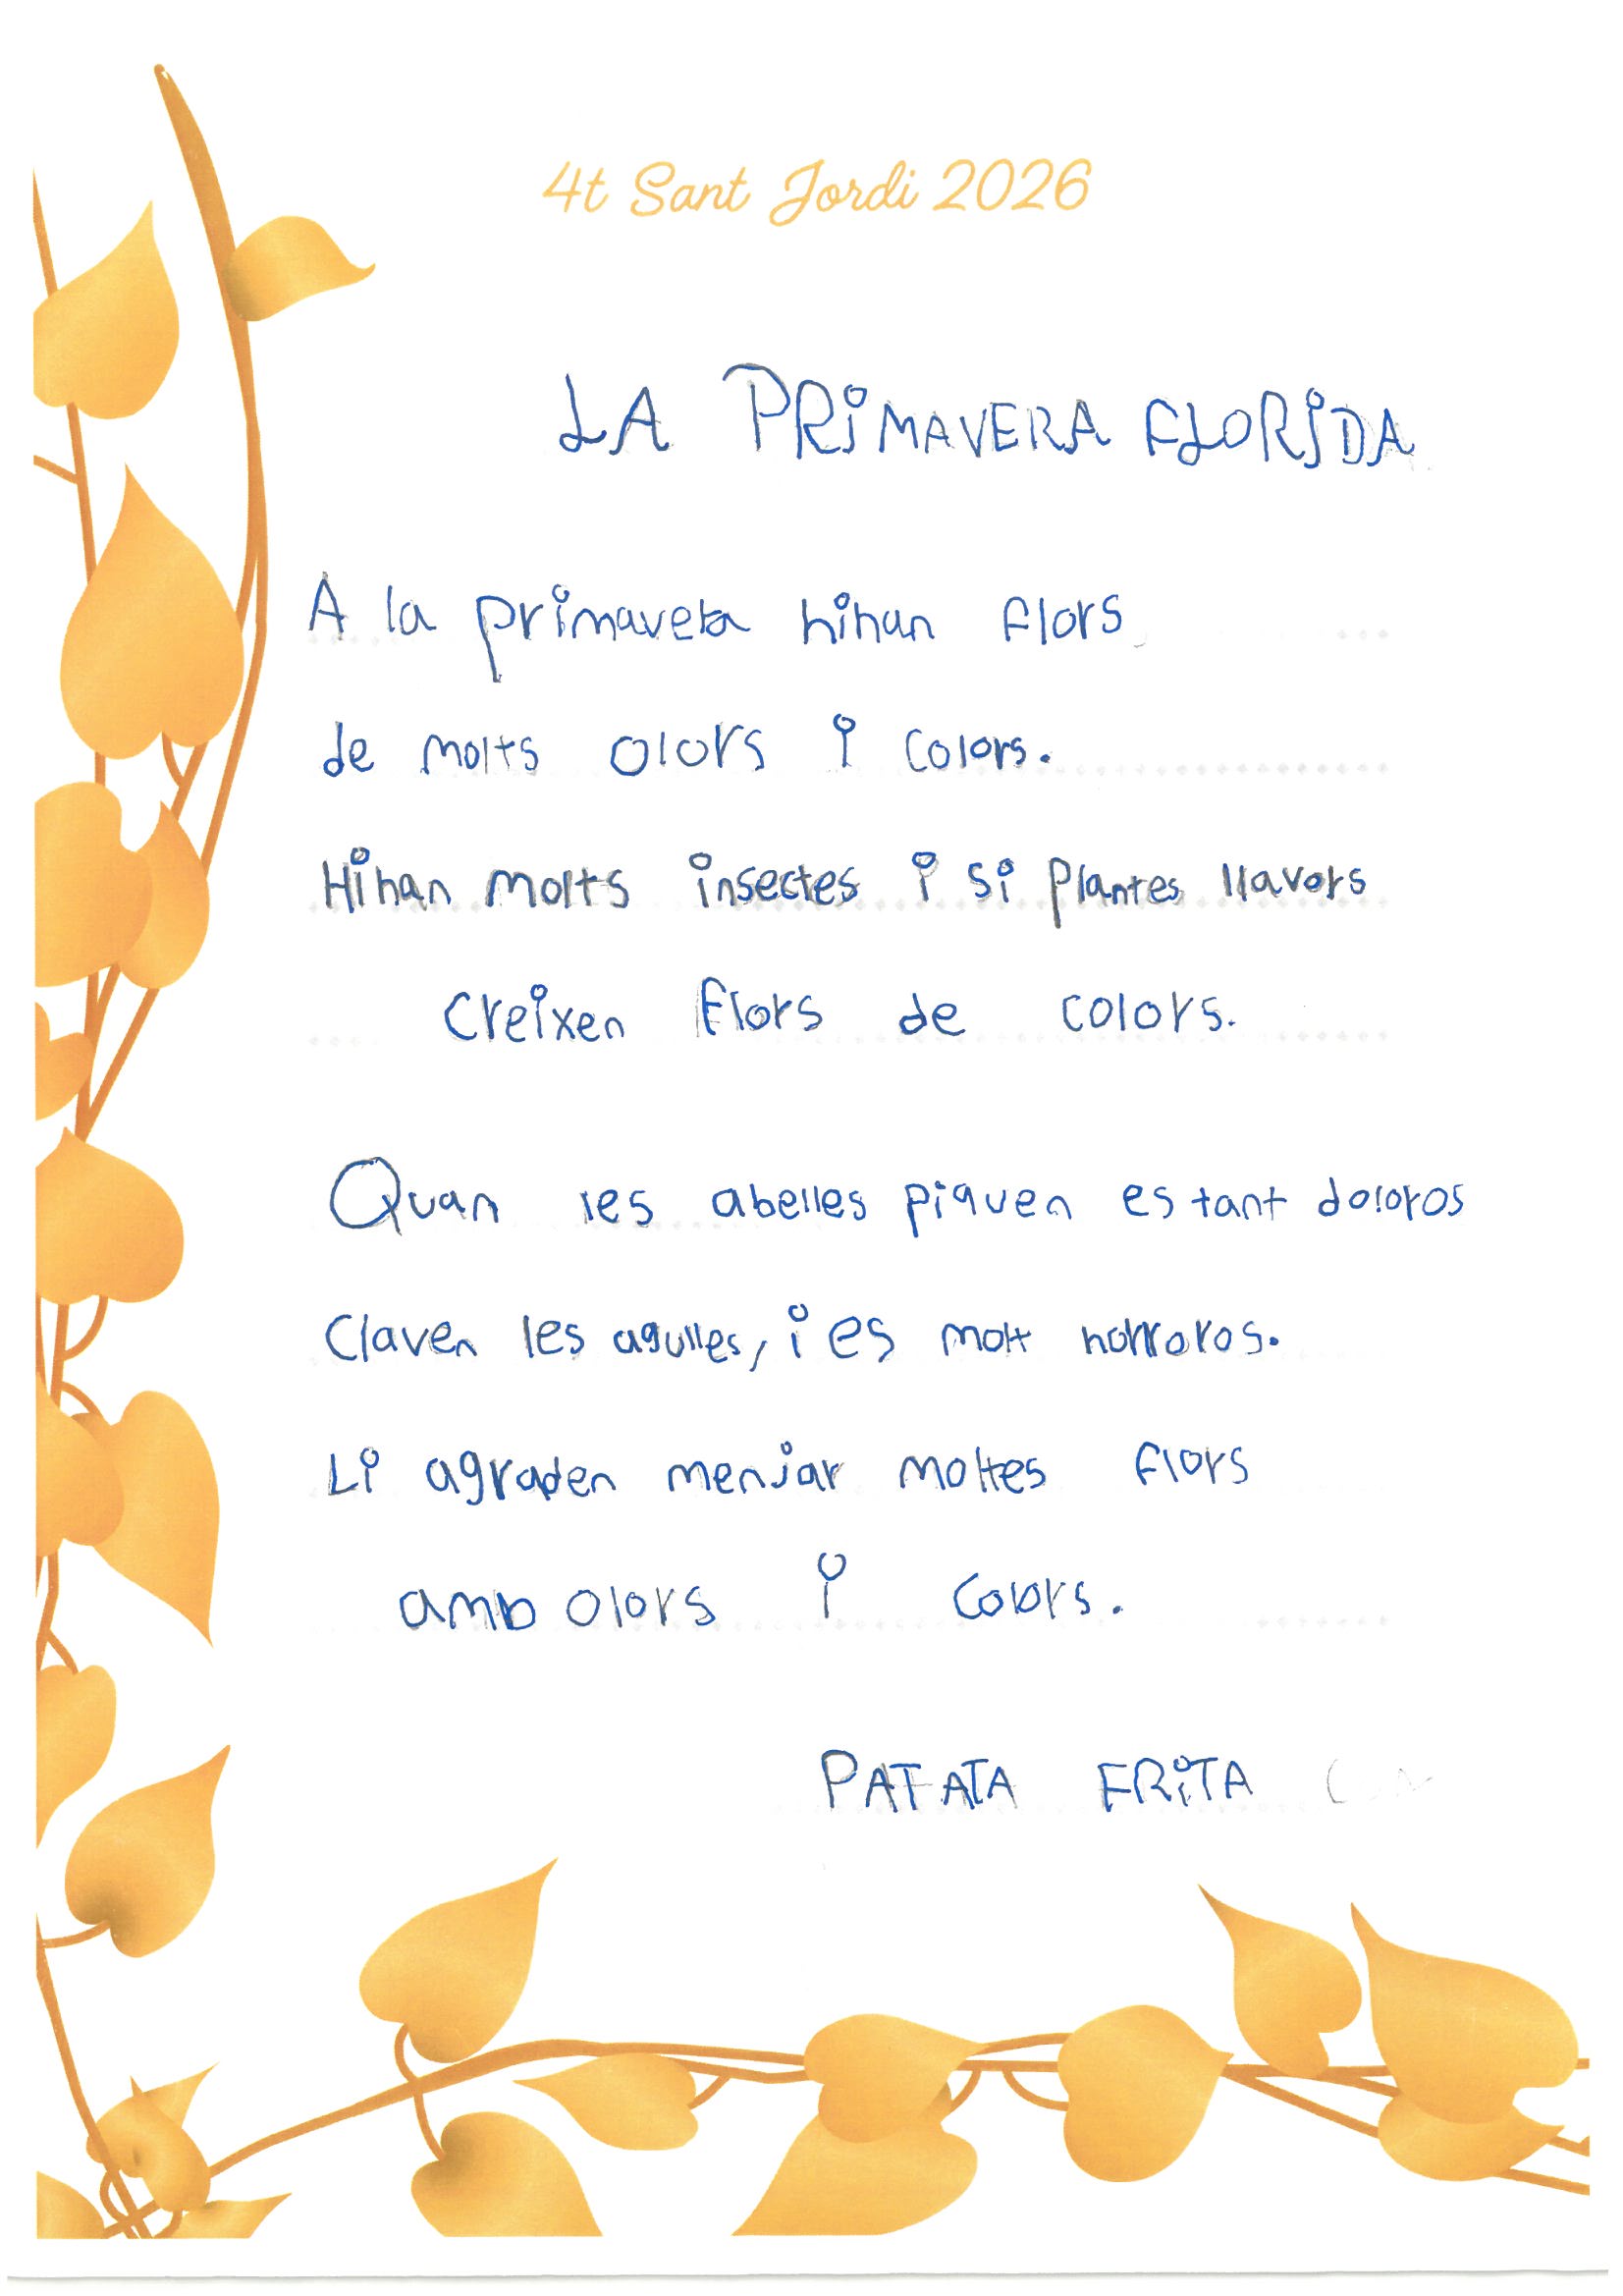 4t Sant Jordi 2026
LA PRiMAVERA FLORiDA
A la primavera hihan flors
de molts olors i colors.
Hihan molts insectes i si plantes llavors
creixen flors de colors.
Quan les abelles piquen es tant doloros
Claven les agulles, i es molt horroros.
Li agraden menjar moltes flors
amb olors i colors.
PATATA FRiTA